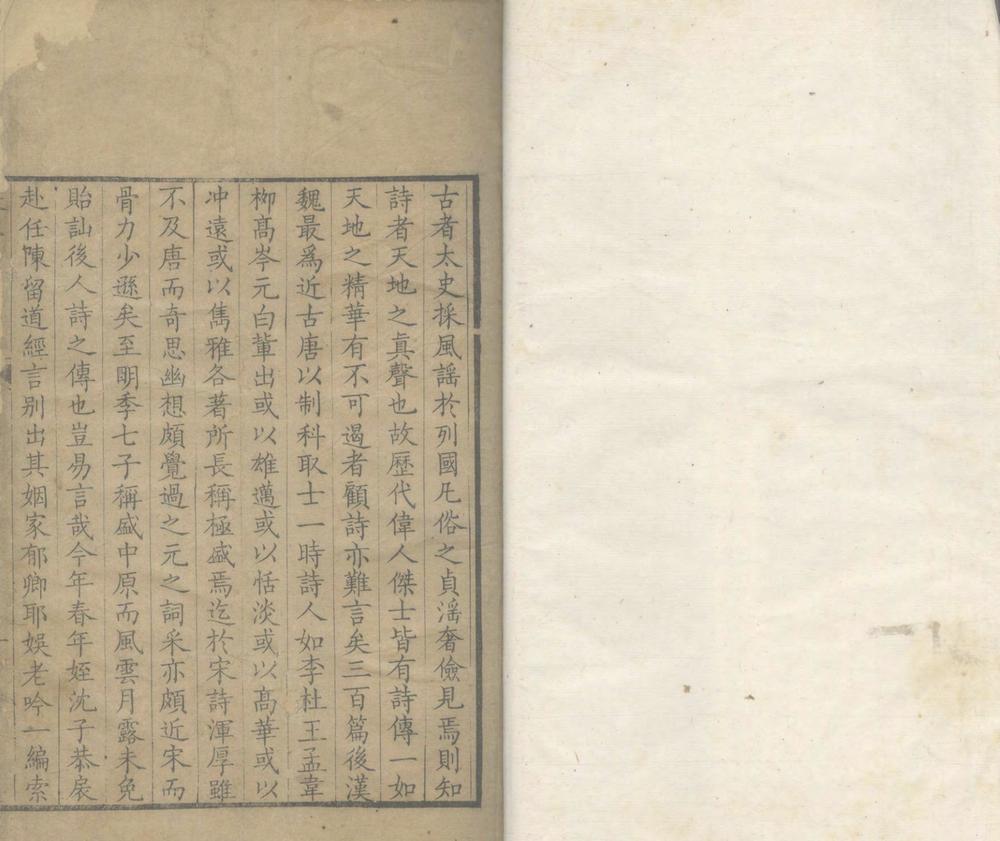 古者太史採風謠於列國凡俗之貞淫奢儉見焉則知
詩者天地之真聲也故歷代偉人傑士皆有詩傳一如
天地之精華有不可遏者顧詩亦難言矣三百篇後漢
魏最爲近古唐以制科取士一時詩人如李杜王孟韋
栁髙岑元白軰出或以雄邁或以恬淡或以髙華或以
冲遠或以雋雅各著所長稱極盛焉迄於宋詩渾厚雖
不及唐而奇思幽想頗覺過之元之詞采亦頗近宋而
骨力少遜矣至明季七子稱盛中原而風雲月露未免
貽訕後人詩之傳也豈易言哉今年春年姪沈子恭
赴任陳留道經言别出其姻家郁卿耶娛老吟一編索